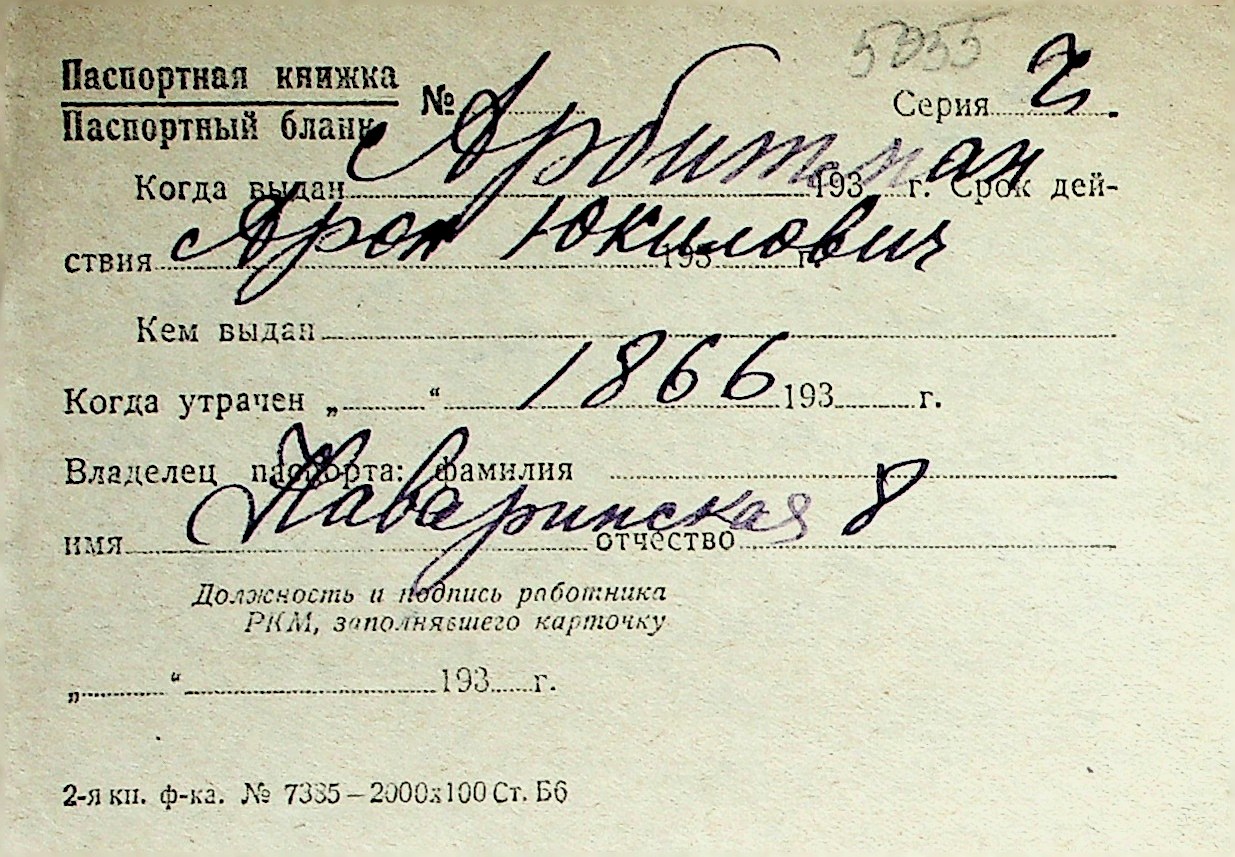 5355
Паспортная книжка
Паспортный бланк № Серия
Арбитман
Когда выдан 193 г. Срок дей-
Арон Юкилович
ствия 193 г.
Кем выдан
1866
Когда утрачен „ “ 193 г.
Владелец паспорта: фамилия
Наваринская 8
имя отчество
Должность и подпись работника
РКМ, заполнявшего карточку
„ “ 193 г.
2-я кн. ф-ка. № 7335—2000х100 Ст. Б6